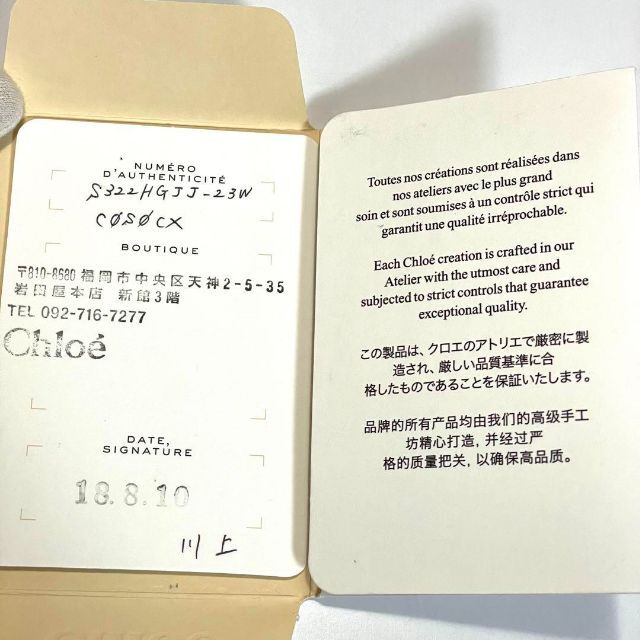 NUMÉRO
D'AUTHENTICITÉ
S322HGJJ-23W
C0S0CX
BOUTIQUE
〒810-8580 福岡市中央区天神2-5-35
岩田屋本店 新館3階
TEL 092-716-7277
Chloé
DATE,
SIGNATURE
18.8.10
川上
Toutes nos créations sont réalisées dans
nos ateliers avec le plus grand
soin et sont soumises à un contrôle strict qui
garantit une qualité irréprochable.
Each Chloé creation is crafted in our
Atelier with the utmost care and
subjected to strict controls that guarantee
exceptional quality.
この製品は、クロエのアトリエで厳密に製
造され、厳しい品質基準に合
格したものであることを保証いたします。
品牌的所有产品均由我们的高级手工
坊精心打造，并经过严
格的质量把关，以确保高品质。